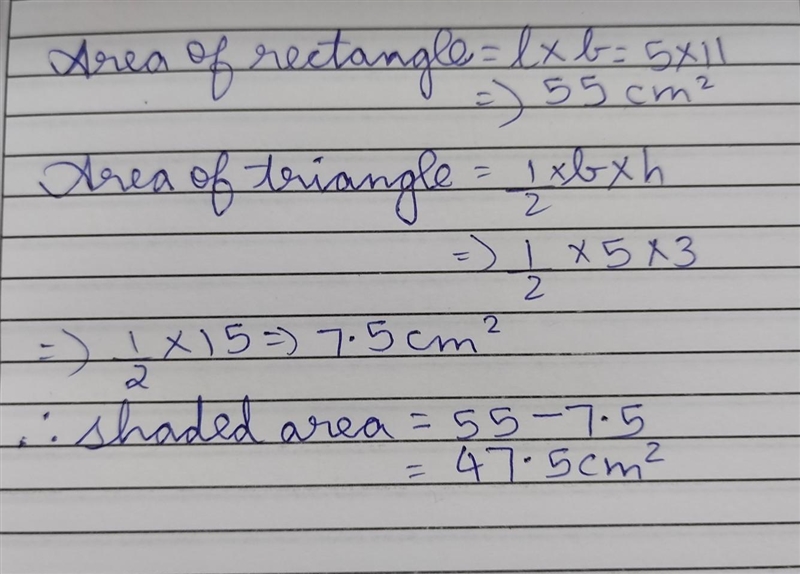 Area of rectangle = l × b = 5 × 11
=> 55 cm²
Area of triangle = 1/2 × b × h
=> 1/2 × 5 × 3
=> 1/2 × 15 => 7.5 cm²
∴ shaded area = 55 - 7.5
= 47.5 cm²